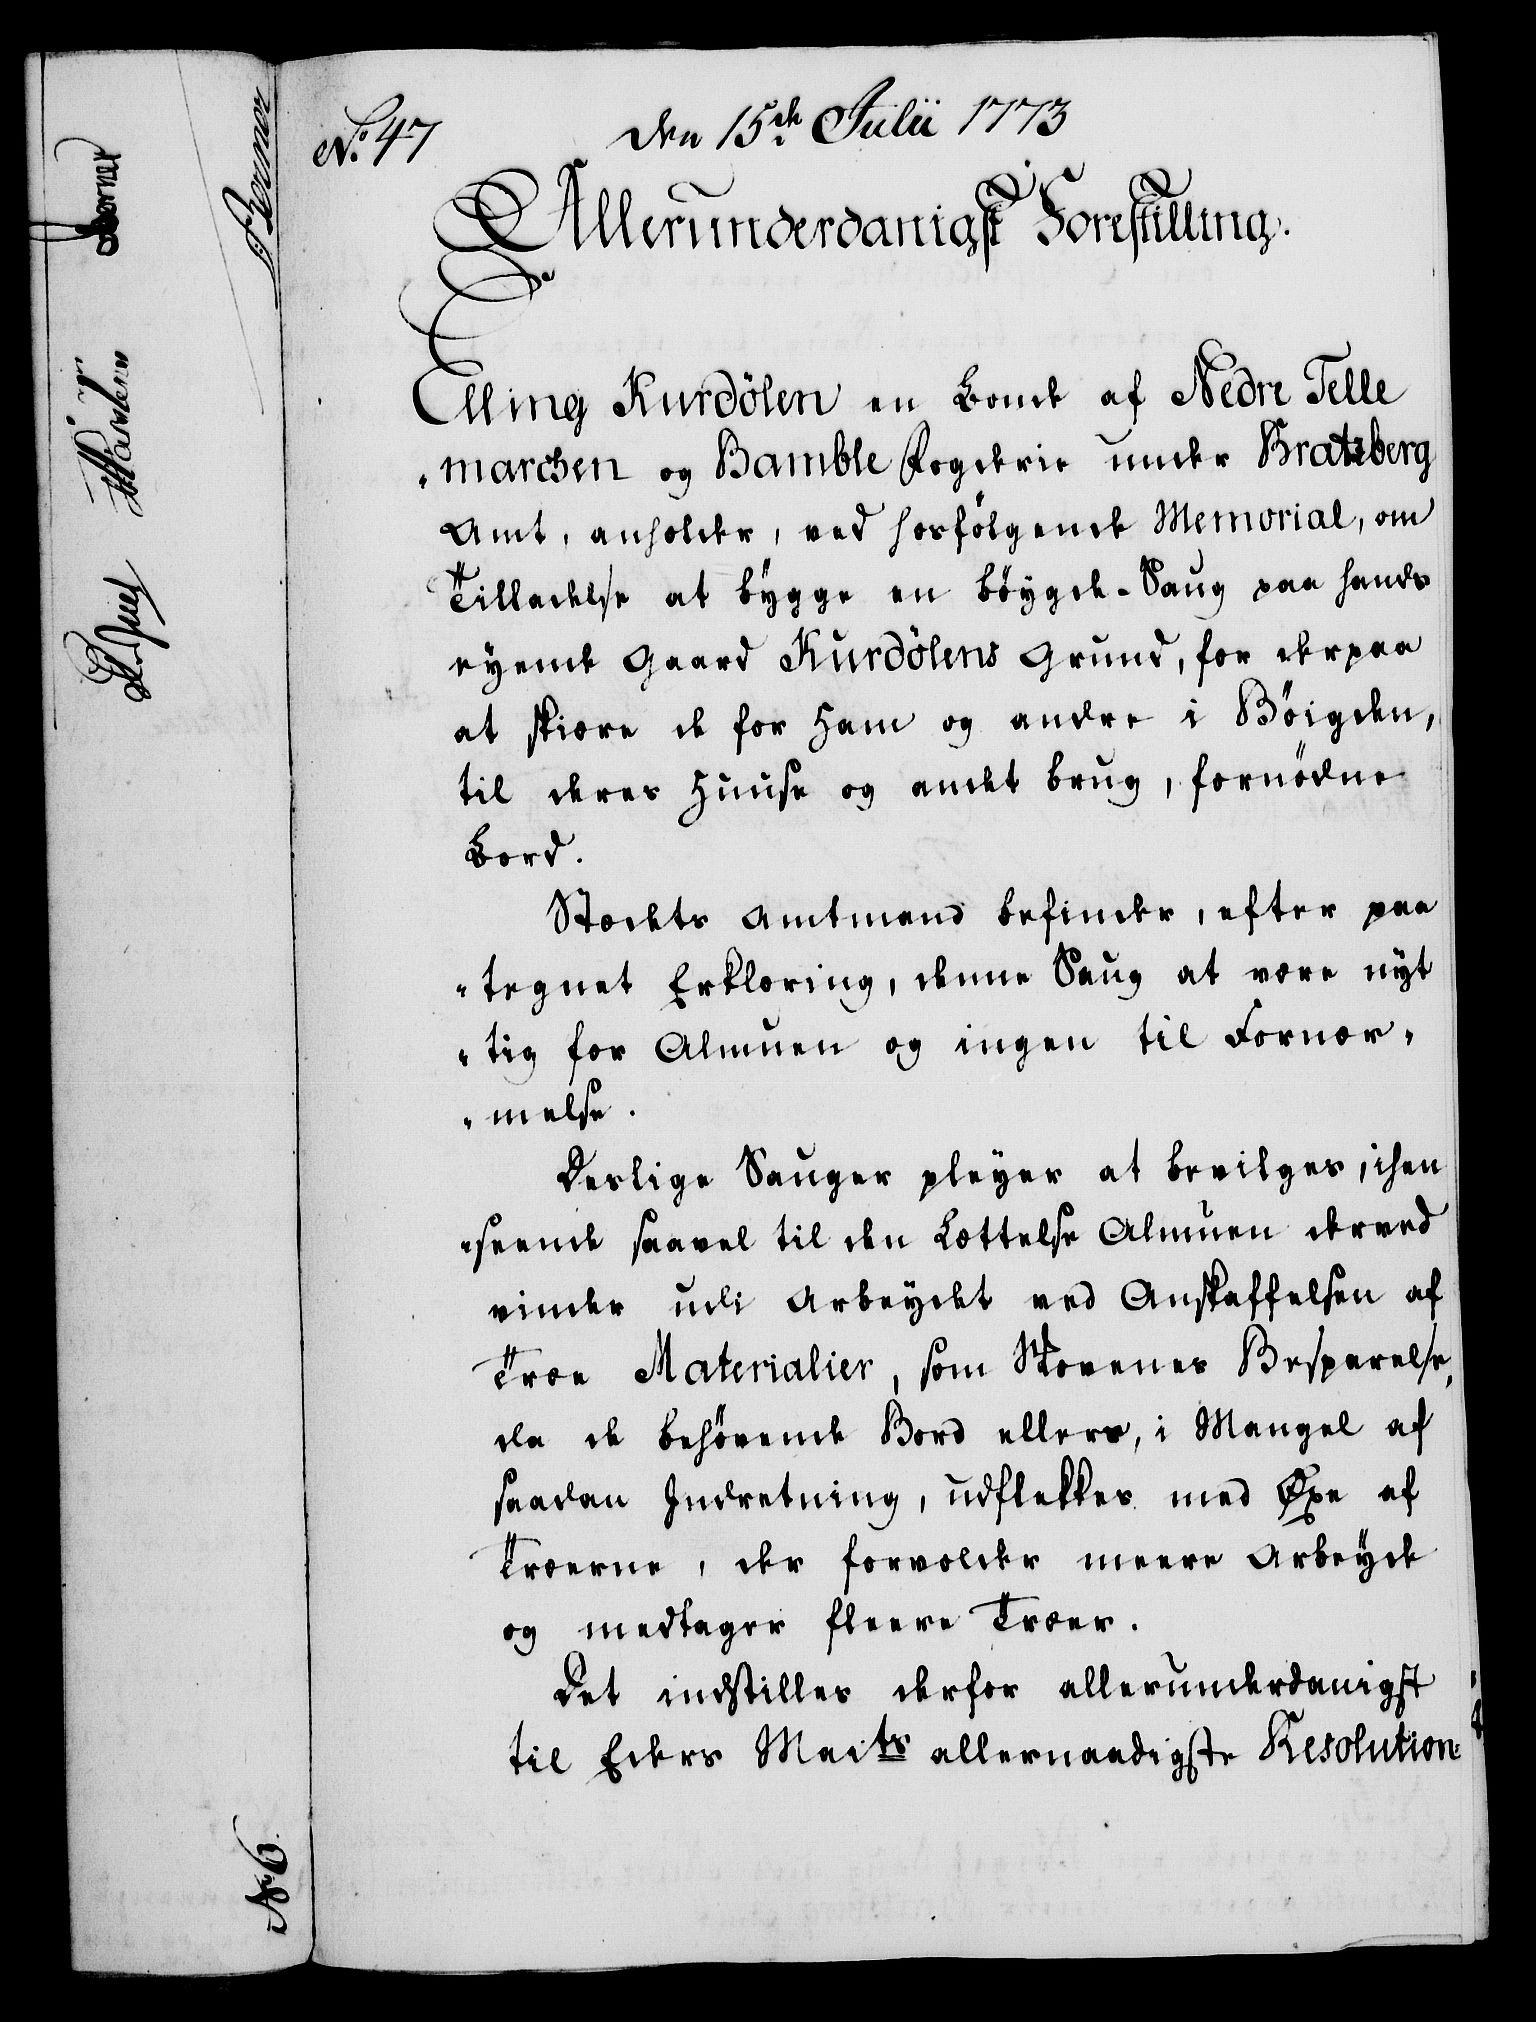 No. 47
Den 15de Julii 1773
Allerunderdanigst Forestilling.
Elling Kurdölen en Bonde af Nedre Telle
"marchen og Bamble Fogderie under Bratzberg
Amt, anholder, ved hosfölgende Memorial, om
Tilladelse at bÿgge en böÿgde-Saug paa hands
eyende Gaard Kurdölens Grund, for derpaa
at skiære de for Ham og andre i Böigden,
til deres Huuse og andet brug, fornödne
Bord.
Stædets Amtmand befinder, efter paa
"tegnet Erklæring, denne Saug at være nÿt
"tig for Almuen og ingen til Fornær"
"melse.
Deslige Sauger pleÿer at bevilges, ihen
"seende saavel til den Lættelse Almuen derved
vinder udi Arbeÿdet ved Anskaffelsen af
Træe Materialier, som Skovenes Besparelse,
da de behövende Bord ellers, i Mangel af
saadan Indretning, udflekkes med Øxe af
Træerne, der forvolder meere Arbeÿde
og medtager fleere Træer.
Det indstilles derfor allerunderdanigst
til Eders Maits allernaadigste Resolution:
No 6.